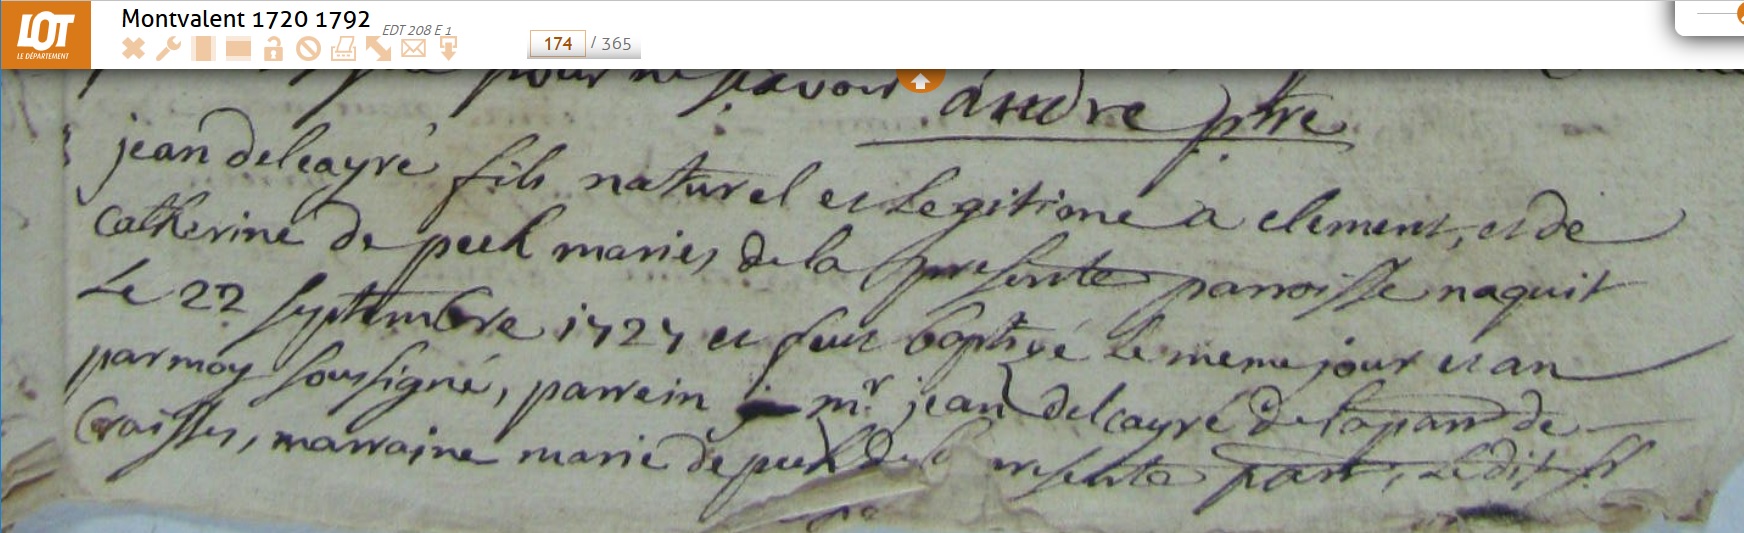 LOT
LE DÉPARTEMENT
Montvalent 1720 1792
EDT 208 E 1
174 / 365
pour ne sçavoir andré ptre
jean delcayré fils naturel et legitime a clement, et de
Catherine de puch mariés de la presente parroisse naquit
Le 22 septembre 1727 et feut baptizé le meme jour et an
par moy soussigné, parrein mr jean delcayré de la parr de
marraine marie de puch de la presente parr, Ledit sr